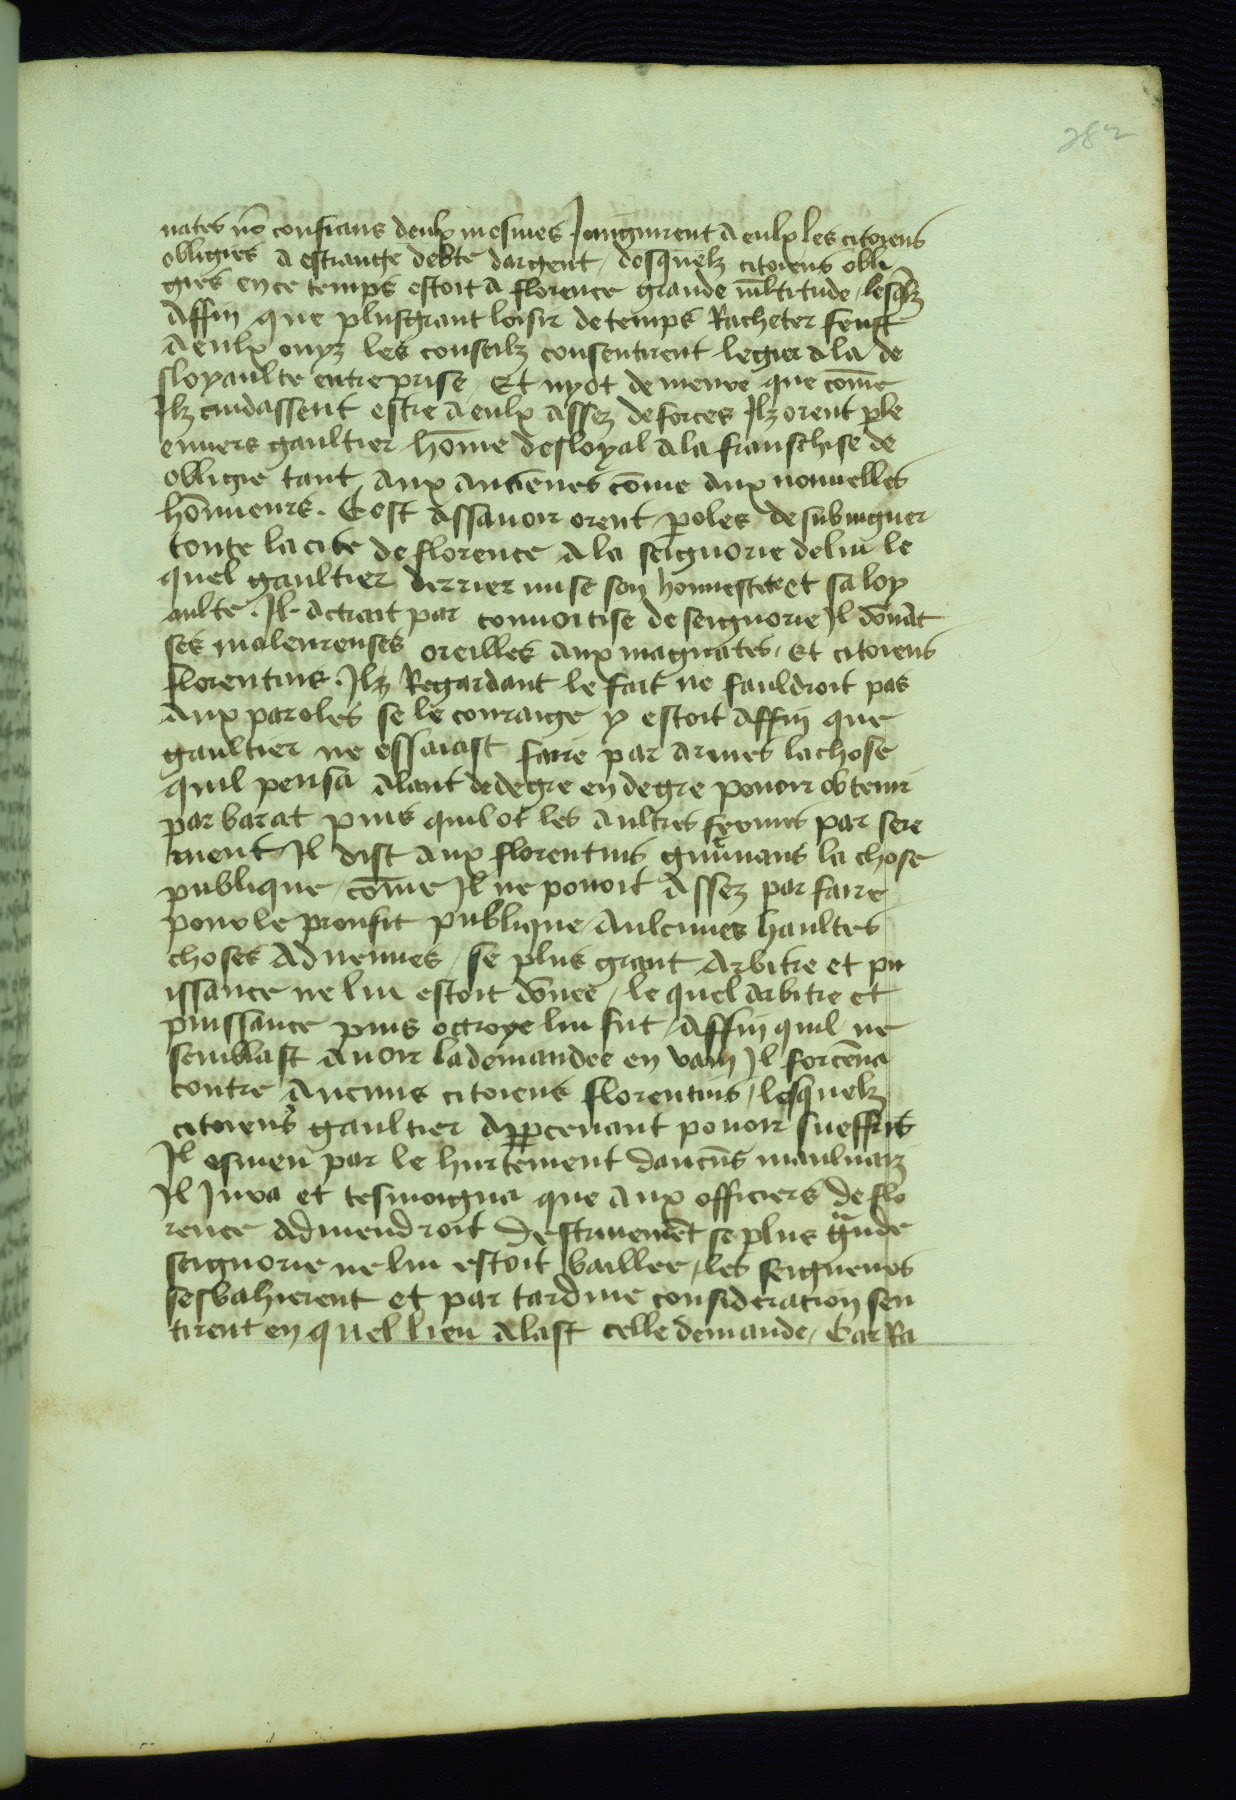 282
nates nō confians deulx mesmes Joingnirent a eulx les citoiens
obligies a estrange debte dargent / desquelz citoiens obli
gies en ce temps estoit a florence grande mltitude / lesqlz
Affin que plusgrant loisir de temps Racheter feust
a eulx oiyz les conseilz consentirent legier a la de
sloyaulte entreprise / Et nyot demeure que cōme
Ilz cuidassent estre a eulx assez de forces Ilz orent ple
envers gaultier hōme desloyal a la franschise de
obligie tant aux anciēnes cōme aux nouuelles
hōnneurs . Cest assauoir orent poles de subiuguer
toute la cite de florence a la seignorie de lui le
quel gaultier derrier mise son honnestete et sa loy
aulte . Il actrait par conuoitise de seignorie Il dōnāt
ses maleureuses oreilles aux magnates / Et citoiens
florentins . Ilz Regardant le fait ne fauldroit pas
aux paroles se le couraige y estoit Affin que
gaultier ne essaiast faire par armes la chose
quil pensa alant de degre en degre pouoir obtenir
par barat puis quil ot les aultres fermes par sere
ment Il dist aux florentins guūnans la chose
publique / cōme Il ne pouoit assez par faire
pour le prouffit publique / Aulcunes haultes
choses Aduenues / se plus grant Arbitre et pu
issance ne lui estoit dōnee / le quel arbitre et
puissance puis octroye lui fut / Affin quil ne
semblast auoir la demandee en vain Il forcēna
contre aucuns citoiens florentins / lesquelz
citoiens gaultier appceuant pouoir sueffris
Il esmeu par le hurtement daucūs mauluaiz
Il Jura et tesmoingna que aux officiers de flo
rence aduiendroit destruiemēt se plus grāde
seignorie ne lui estoit baillee / les seigneurs
sesbahierent et par tardiue consideracion sen
tirent en quel lieu alast celle demande / Car Ra